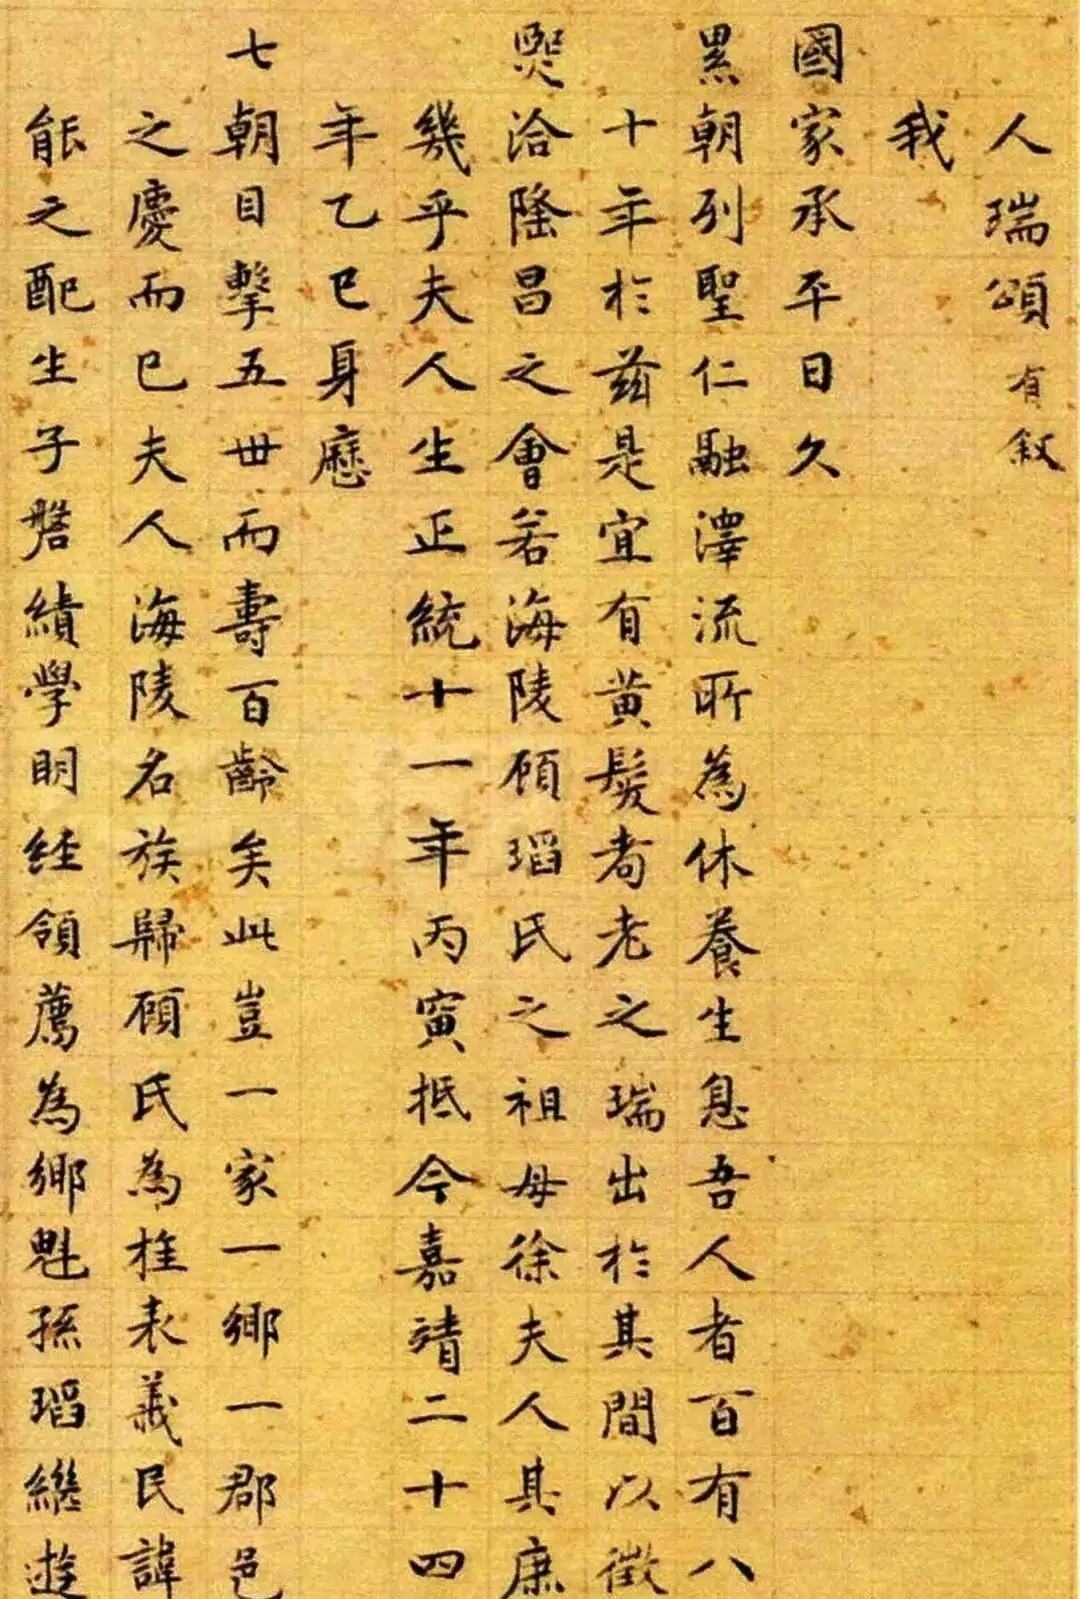 人瑞頌有敘
我
國家承平日久
累朝列聖仁融澤流所為休養生息吾人者百有八
十年於茲是宜有黃髮耈老之瑞出於其間以徵
熙洽隆昌之會若海陵顧瑫氏之祖母徐夫人其庶
幾乎夫人生正統十一年丙寅抵今嘉靖二十四
年乙巳身歷
七朝目擊五世而壽百齡矣此豈一家一鄉一郡邑
之慶而已夫人海陵名族歸顧氏為柱表義民諱
能之配生子磐績學明經領薦為鄉魁孫瑫繼遊